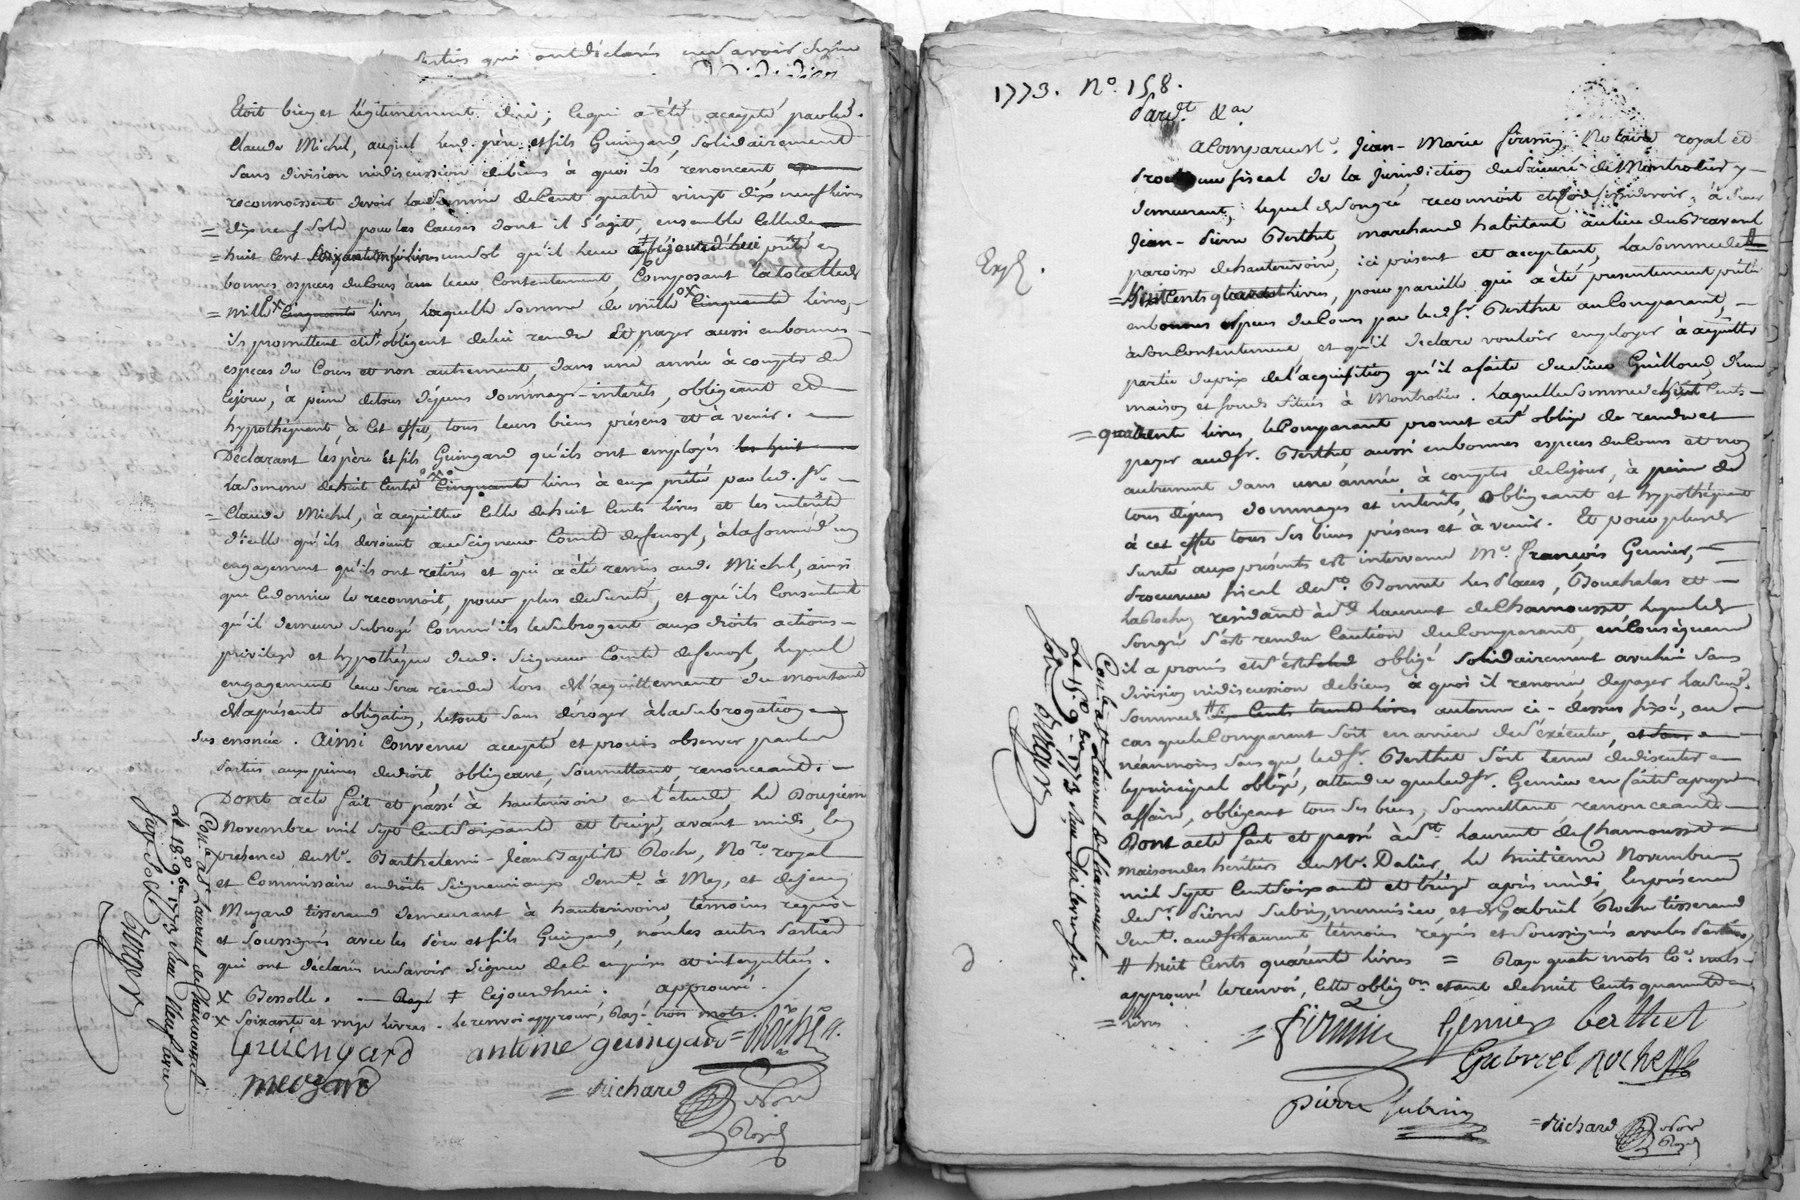 parties qui ont déclarés ne savoir signer
Etoit bien et légitimement due ; ce qui a été accepté par led.
Claude Michel, auquel lesd. père et fils Guingard, solidairement
sans division ni discussion de biens à quoi ils renoncent
reconnoissent devoir la somme de Cent quatre vingt dix neuf livres
= dix neuf sols pour les causes dont il s'agit, ensemble Celle de
= huit Cent livres un sol qu'il leur a prêté en
bonnes especes du Cours à leur Contentement, Composant la totallité de
= mille Cinquante livres, laquelle somme de mille Cinquante livres,
ils promettent et s'obligent de lui rendre et payer aussi en bonnes
especes du Cours et non autrement, dans une année à compter de
Cejour, à peine de tous dépens dommages-interêts, obligeant et
hypothéquent, à cet effet, tous leurs biens présens et à venir.
Déclarant les père et fils Guingard qu'ils ont employés les huit
la somme de huit Cents Cinquante livres à eux prêtée par led. Sr.
= Claude Michel, à acquitter Celle de huit Cents livres et les intérêts
d'icelle qu'ils devoient au Seigneur Comte de fenoyl, à la forme d'un
engagement qu'ils ont retirés et qui a été remis aud. Michel, ainsi
que ce dernier le reconnoit, pour plus de sureté, et qu'ils Consentent
qu'il demeure subrogé Comme ils le subrogent aux droits actions
privilege et hypothéque dud. Seigneur Comte de fenoyl, lequel
engagement leur sera rendu lors de l'acquittement du montant
de la présente obligation, le tout sans déroger à la subrogation
sus enoncée. Ainsi convenu accepté et promis observer par les
parties aux peines de droit, obligeant, soumettant, renonceant.
Dont acte fait et passé à hauterivoire en l'étude, le Douzieme
Novembre mil sept Cent soixante et treize, avant midi, en
présence de Mr. Barthelemi-Jean Baptiste Roche, No.re royal
et Commissaire en droits seigneuriaux demt. à Mey, et de Jean
Muzard tisserand demeurant à hauterivoire, témoins requis
et soussignés avec les père et fils Guingard, non les autres parties
qui ont déclarés ne savoir signer de ce enquises et interpellées.
Rayé cejourdhui. approuvé.
soixante et onze livres. le renvoi approuvé, Rayé trois mots.
Guiengard antoine guingard = Roche
meuzard
= Richard Nore
Royal
Con.lé à St Laurent de Chamousset
Le 18. 9.bre 1773 Reçu Neuf livres
1773. No. 158.
Pardt. &ar
A Comparu Mr. Jean-Marie firmin, Notaire royal et
Procureur fiscal de la Juridiction du prieuré de Montrotier y
demeurant, lequel de son gré reconnoit et devoir, à sieur
Jean-Pierre Berthet, marchand habitant au lieu du Gravent
paroisse de hauterivoire, ici présent et acceptant, la somme de
= huit Cents quarante livres, pour pareille qui a été présentement prêtée
en bonnes especes du Cours par led. Sr. Berthet au Comparant,
à son Contentement, et qu'il declare vouloir employer à acquitter
partie du prix de l'acquisition qu'il a faite du sieur Guilloud, d'une
maison et fonds situés à Montrotier. laquelle somme de huit Cents
= quarante livres, le Comparant promet et s'oblige de rendre et
payer aud. Sr. Berthet, aussi en bonnes especes du Cours et non
autrement dans une année à compter de Cejour, à peine de
tous dépens dommages et intérêts, obligeant et hypothéquent
à cet effet tous ses biens présens et à venir. Et pour plus de
sureté aux présentes est intervenu Me. François Genier,
Procureur fiscal de St. Bonnet les Places, Bouchalas et
la Roche, residant à St. Laurent de Chamousset lequel de
son gré s'est rendu Caution du Comparant, en Conséquence
il a promis et s'est obligé solidairement avec lui sans
division ni discussion de biens à quoi il renonce, de payer lad.
somme de six Cents trente livres au terme ci-dessus fixé, au
cas que le Comparant soit en arriere de s'exécuter,
néanmoins sans que led. Sr. Berthet soit tenu de discuter
le principal obligé, attendu que led. Sr. Genier en fait sa propre
affaire, obligeant tous ses biens, soumettant renonceant
Dont acte fait et passé à St. Laurent de Chamousset
maison des héritiers de Mr. Dalier, le huitieme Novembre
mil sept Cent soixante et treize après midi, En présence
de Sr. Pierre Subrin, menuisier, et de Gabriel Roche tisserand
demt. aud. St Laurent témoins requis et soussignés avec les parties,
# huit Cents quarante livres = Rayé quatre mots
approuvé le renvoi, cette oblig.on etant de huit Cents quarante
= livres
= firmin Genier berthet
Gabriel Roche
pierre subrin
= Richard Nore
Royal
Con.lé à St Laurent de Chamousset
Le 15. 9.bre 1773 Reçu
Exp.